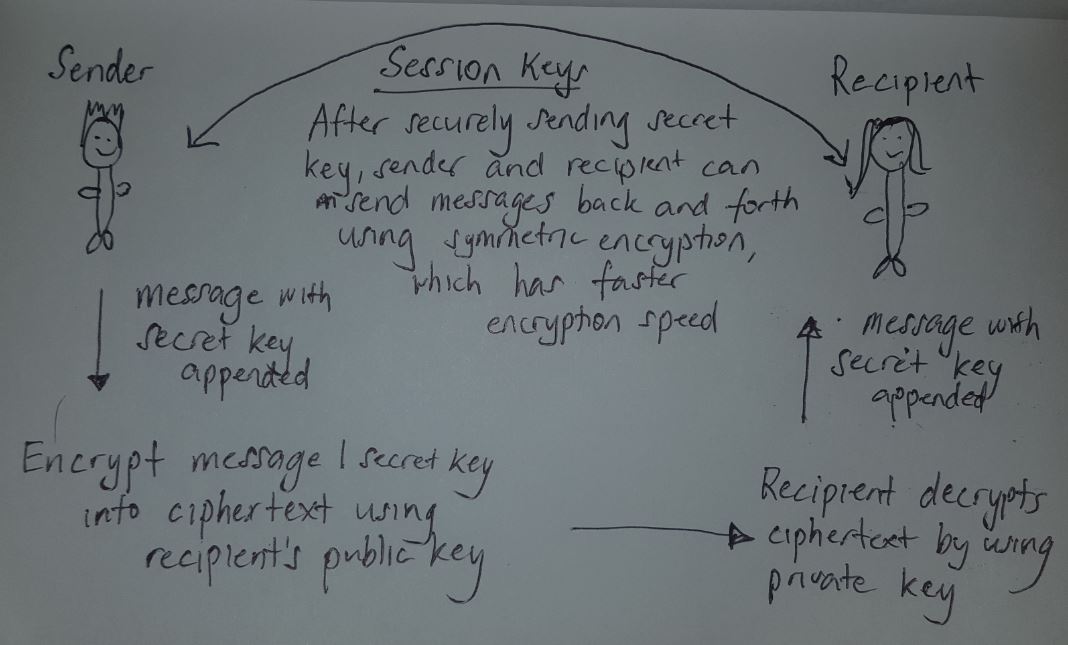 Sender
Session Keys
Recipient
After securely sending secret
key, sender and recipient can
send messages back and forth
using symmetric encryption,
which has faster
encryption speed
message with
secret key
appended
message with
secret key
appended
Encrypt message | secret key
into ciphertext using
recipient's public key
Recipient decrypts
ciphertext by using
private key